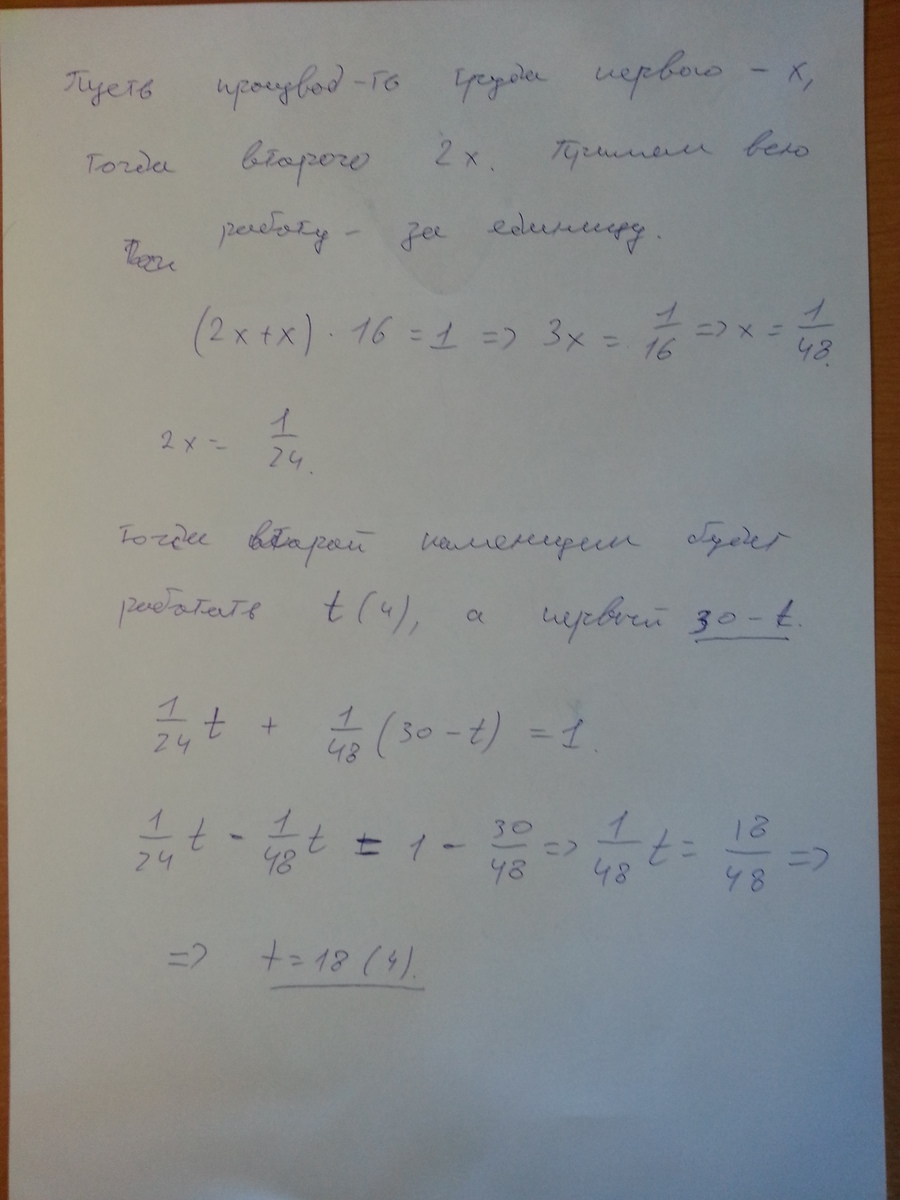 Пусть производ-ть труда первого - x,
тогда второго 2x. Примем всю
работу - за единицу.
(2x+x) · 16 = 1 => 3x = 1/16 => x = 1/48.
2x = 1/24.
Тогда второй каменщик будет
работать t (ч), а первый 30 - t.
1/24 t + 1/48 (30 - t) = 1.
1/24 t - 1/48 t = 1 - 30/48 => 1/48 t = 18/48 =>
=> t = 18 (ч).